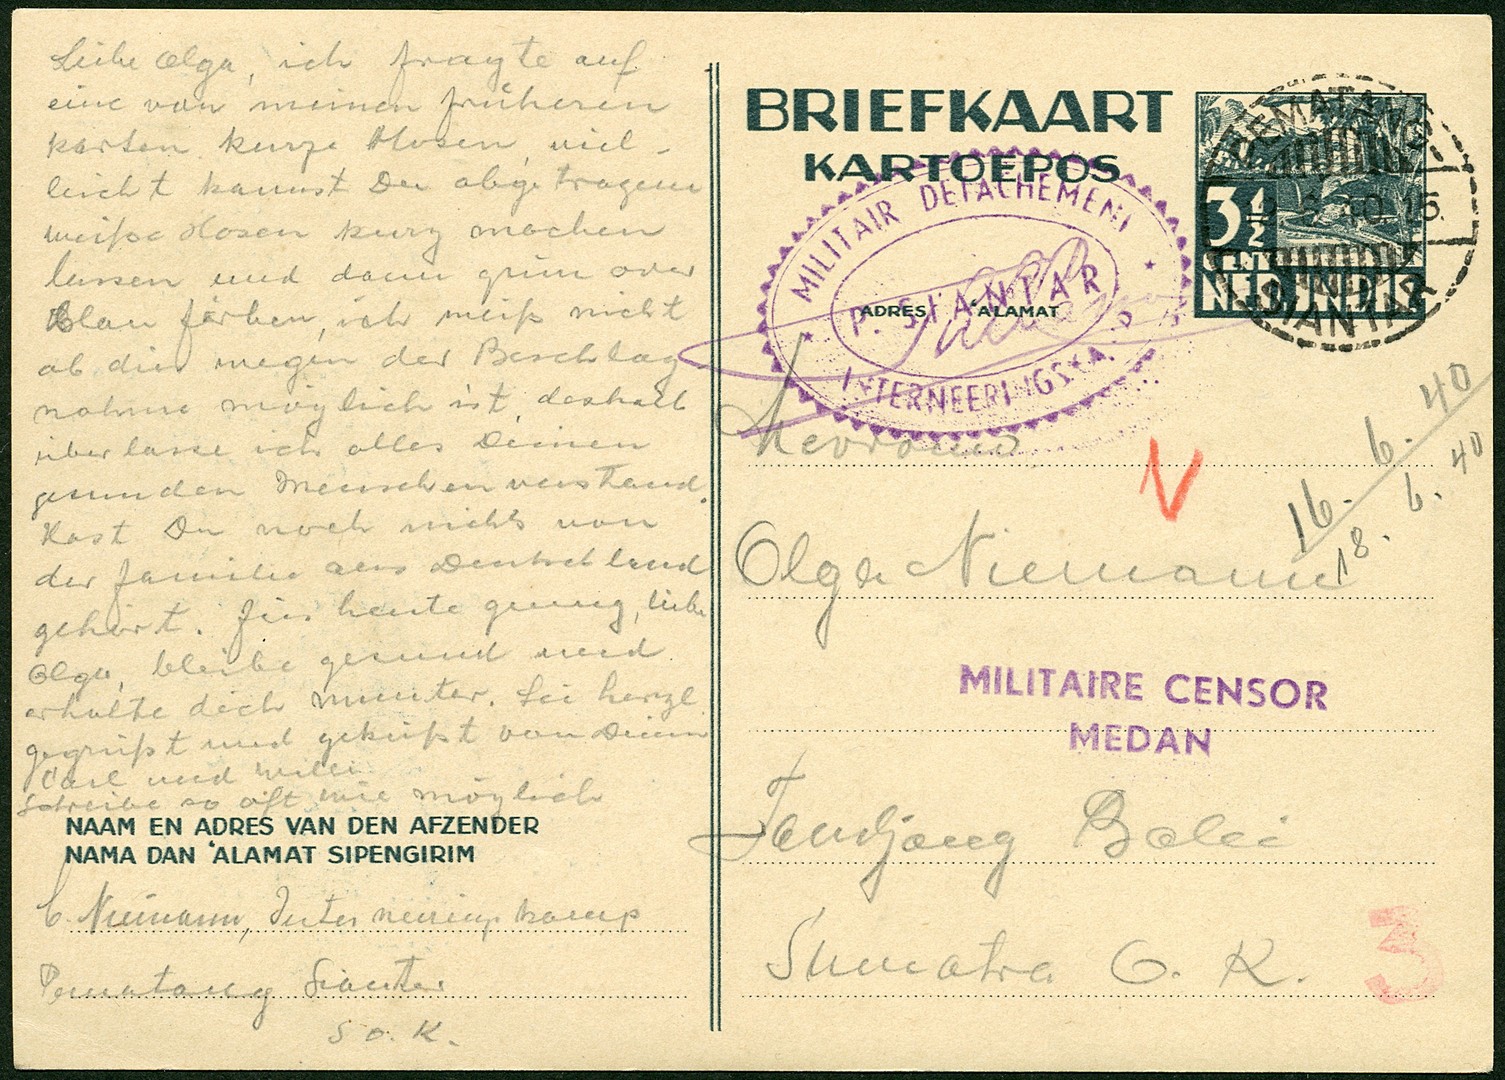 Liebe Olga, ich fragte auf
eine von meinen früheren
karten kurze Hosen, viel-
leicht kannst Du abgetragene
weiße Hosen kurz machen
lassen und dann grün oder
Blau färben, ich weiß nicht
ob dies wegen der Beschlag
nahme möglich ist, deshalb
überlasse ich alles Deinem
gesunden Menschenverstand.
Hast Du noch nichts von
der familie aus Deutschland
gehört. Für heute genug, liebe
Olga, bleibe gesund und
erhalte dich munter. Sei herzl
gegrüßt und geküßt von Deinem
Carl und Willi
Schreibe so oft wie möglich
NAAM EN ADRES VAN DEN AFZENDER
NAMA DAN 'ALAMAT SIPENGIRIM
C. Niemann, Interneeringskamp
Pematang Siantar
S. O. K.
BRIEFKAART
KARTOEPOS
3 1/2
CENT
NED. INDIE
PEMATANG
6. 40. 15
SIANTAR
MILITAIR DETACHEMENT
P. SIANTAR
INTERNEERINGSKA
ADRES 'ALAMAT
Mevrouw
Olga Niemann
16. 6. 40
18. 6. 40
MILITAIRE CENSOR
MEDAN
Tandjong Balei
Sumatra O. K.
3